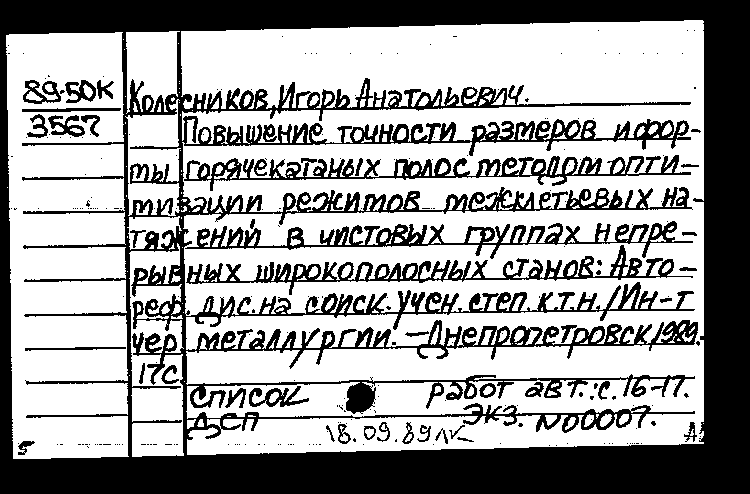 89-50К
3567
Колесников, Игорь Анатольевич.
Повышение точности размеров и фор-
мы горячекатаных полос методом опти-
мизации режимов межклетьевых на-
тяжений в чистовых группах непре-
рывных широкополосных станов: Авто-
реф. дис. на соиск. учен. степ. к.т.н. / Ин-т
чер. металлургии. — Днепропетровск, 1989.
17с.
Список работ авт.: с. 16-17.
ДСП экз. N00007.
18.09.89
5